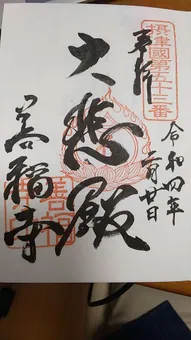 摂津國第五十三番
奉拝
令和四年
二月廿日
大悲殿
善福寺